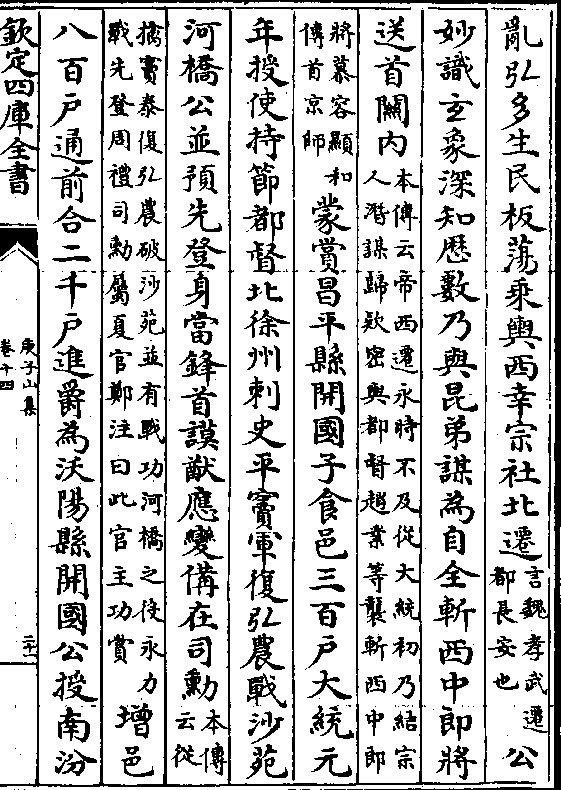 亂弘多生民板蕩乘輿西幸宗社北遷言魏孝武遷都長安也公
妙識玄象深知歷數乃與昆弟謀為自全斬西中郎將
送首關內本傳云帝西遷永時不及從大統初乃結宗人潛謀歸欵密與都督趙業等襲斬西中郎
將慕容顯和傳首京師蒙賞昌平縣開國子食邑三百戶大統元
年授使持節都督北徐州刺史平竇軍復弘農戰沙苑
河橋公並預先登身當鋒首謨猷應變備在司勳本傳云從
擒竇泰復弘農破沙苑並有戰功河橋之役永力戰先登周禮司勳屬夏官鄭注曰此官主功賞增邑
八百戶通前合二千戶進爵為沃陽縣開國公授南汾
欽定四庫全書
庾子山集
卷十四
二十一